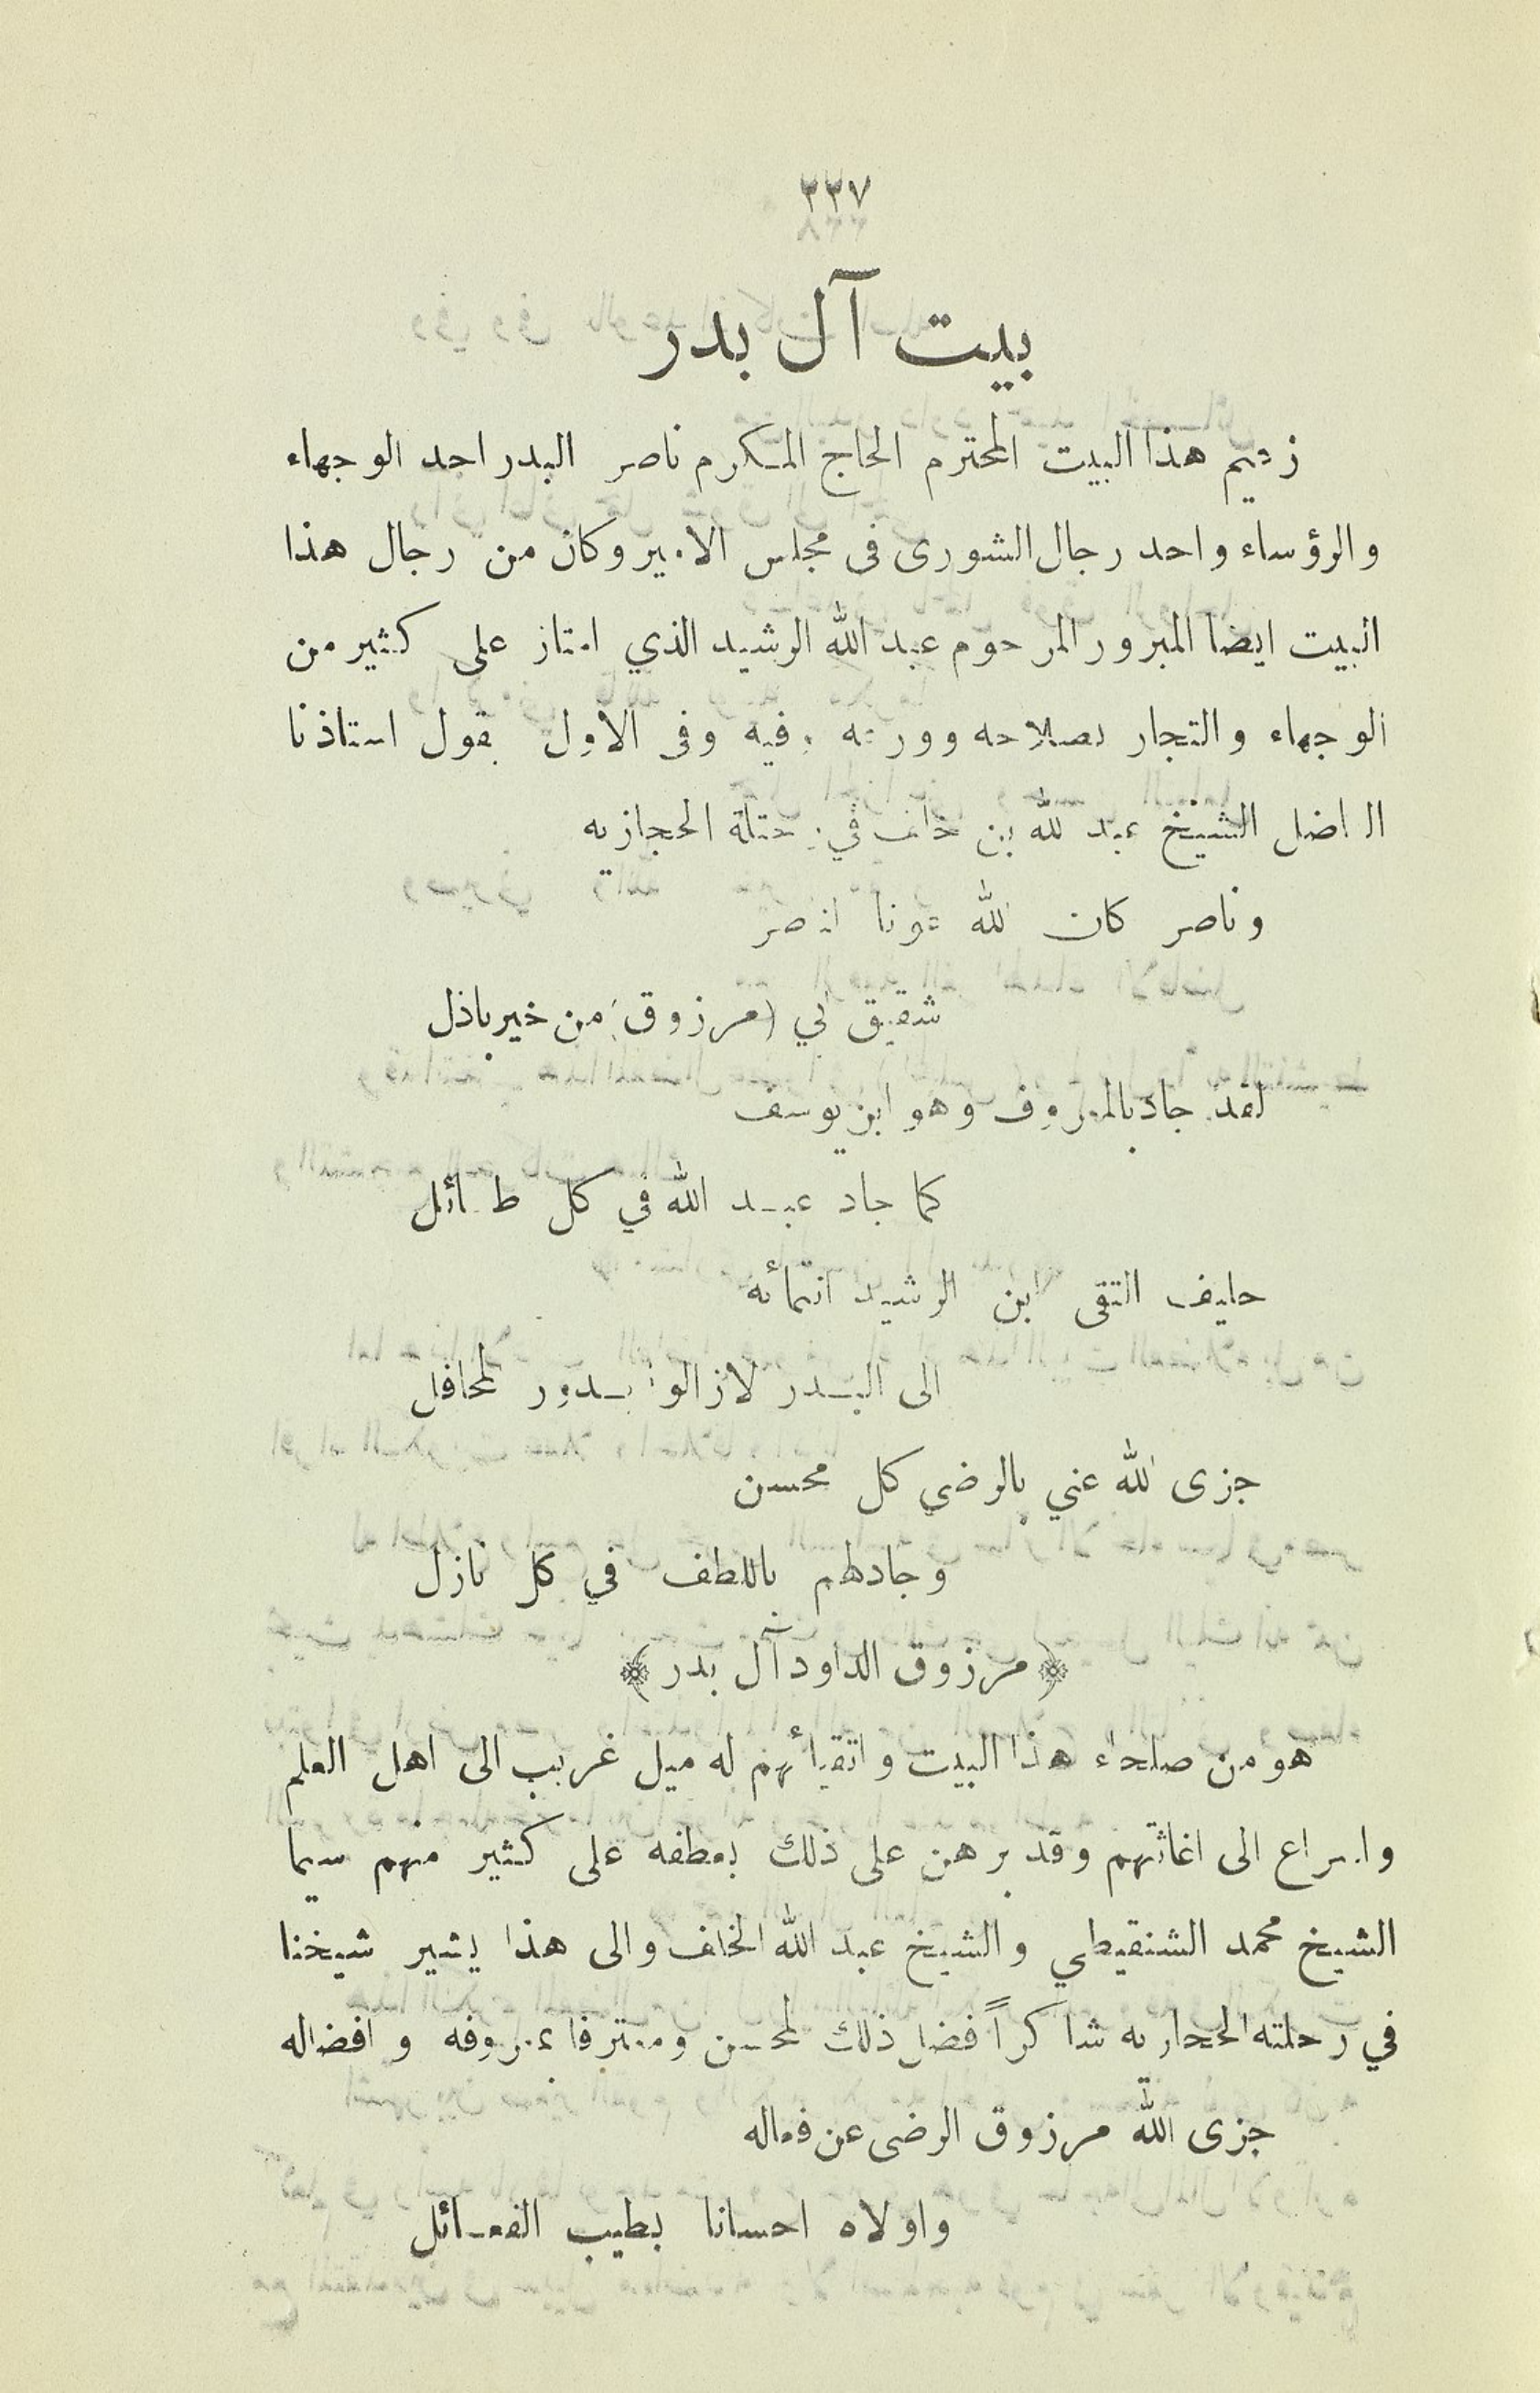 ٢٢٧
بيت آل بدر
زعيم هذا البيت المحترم الحاج المكرم ناصر البدر احد الوجهاء
والرؤساء واحد رجال الشورى فى مجلس الامير وكان من رجال هذا
البيت ايضا المبرور المرحوم عبد الله الرشيد الذي امتاز على كثير من
الوجهاء والتجار بصلاحه وورعه وفيه وفى الاول يقول استاذنا
الفاضل الشيخ عبد الله بن خلف في رحلته الحجازيه
وناصر كان الله عونا لناصر
شقيق ابي (مرزوق) من خير باذل
لقد جاد بالمعروف وهو ابن يوسف
كما جاد عبد الله في كل طائل
حليف التقى ابن الرشيد انتمائه
الى البدر لازالوا بدور المحافل
جزى الله عني بالرضي كل محسن
وجاد لهم باللطف في كل نازل
﴿ مرزوق الداود آل بدر ﴾
هو من صلحاء هذا البيت واتقيائهم له ميل غريب الى اهل العلم
واسراع الى اغاثتهم وقد برهن على ذلك بعطفه على كثير منهم سيما
الشيخ محمد الشنقيطي والشيخ عبد الله الخلف والى هذا يشير شيخنا
في رحلته الحجازيه شاكراً فضل ذلك المحسن ومعترفا بمعروفه وافضاله
جزى الله مرزوق الرضى عن فعاله
واولاه احسانا بطيب الفعائل